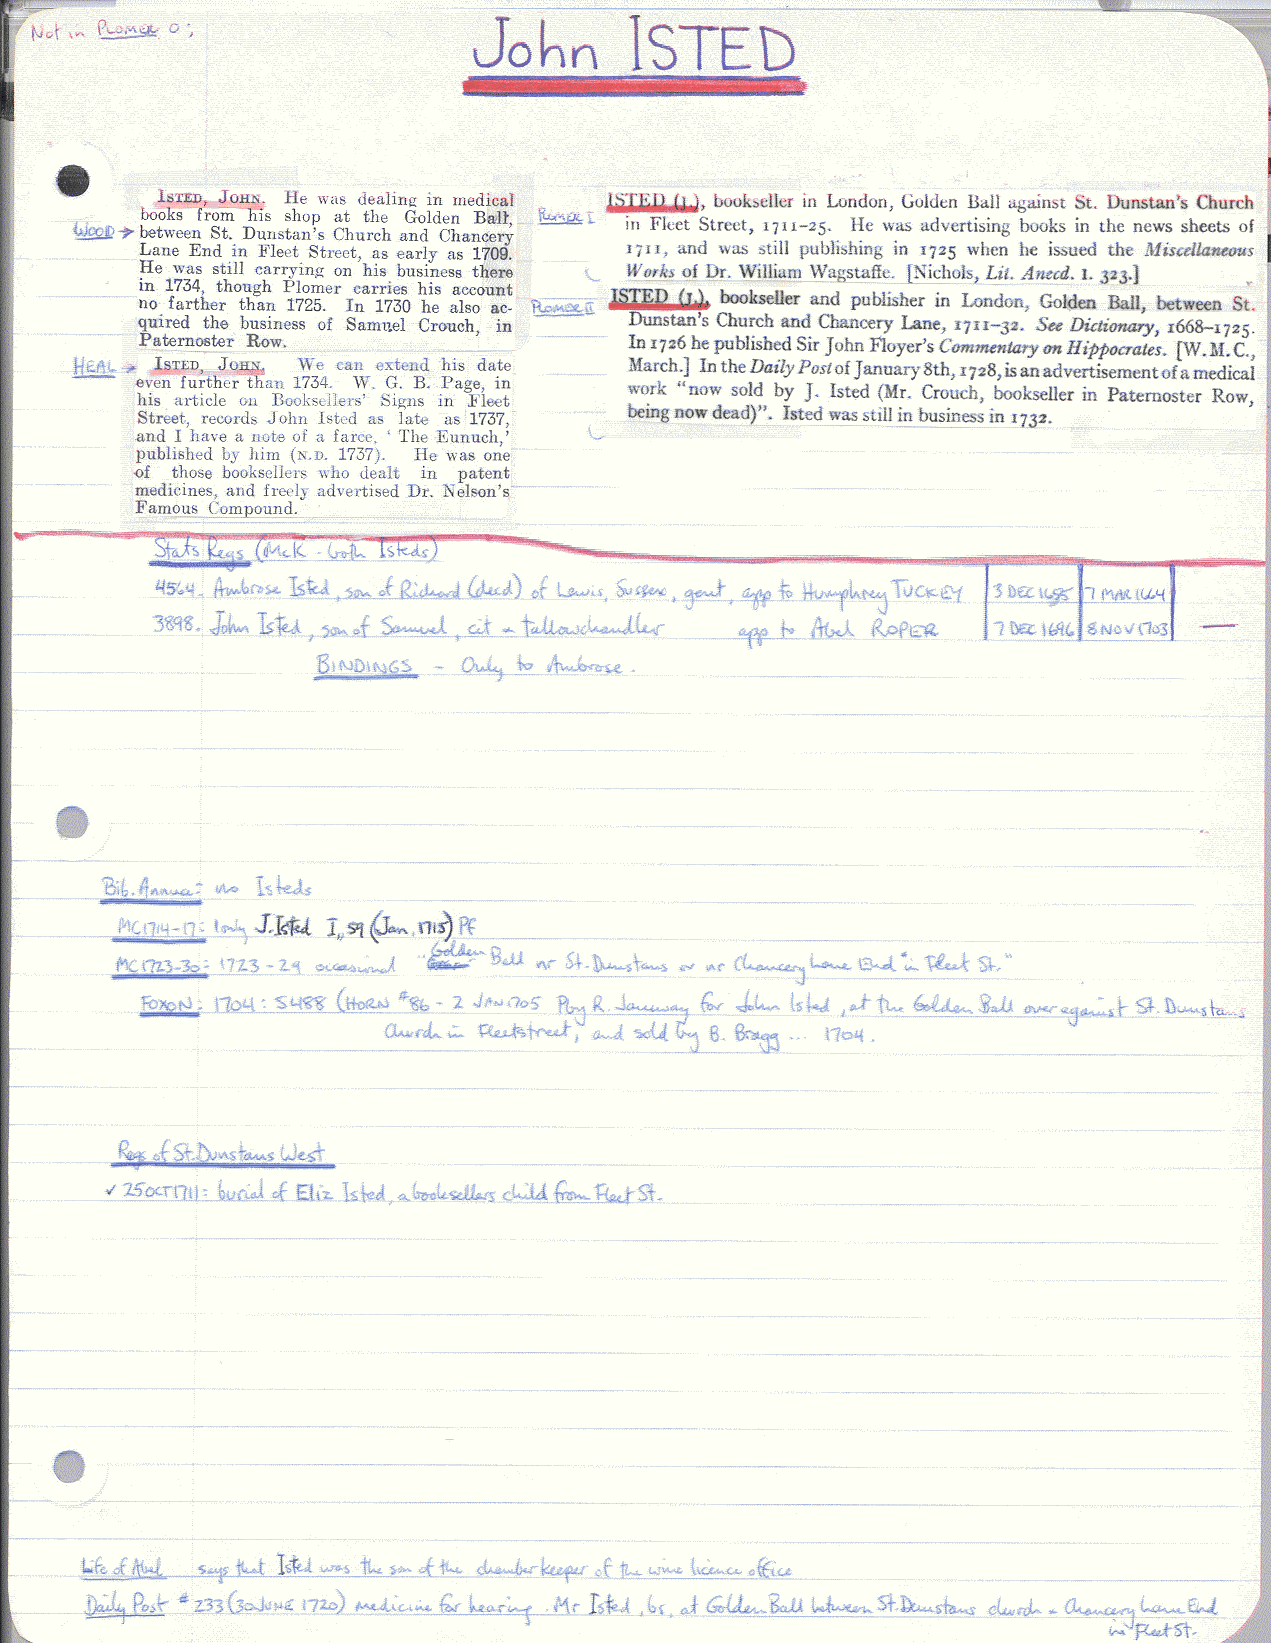 Not in PLOMER O;
John ISTED
WOOD →
ISTED, JOHN. He was dealing in medical
books from his shop at the Golden Ball,
between St. Dunstan's Church and Chancery
Lane End in Fleet Street, as early as 1709.
He was still carrying on his business there
in 1734, though Plomer carries his account
no farther than 1725. In 1730 he also ac-
quired the business of Samuel Crouch, in
Paternoster Row.
HEAL →
ISTED, JOHN. We can extend his date
even further than 1734. W. G. B. Page, in
his article on Booksellers' Signs in Fleet
Street, records John Isted as late as 1737,
and I have a note of a farce, ' The Eunuch,'
published by him (N.D. 1737). He was one
of those booksellers who dealt in patent
medicines, and freely advertised Dr. Nelson's
Famous Compound.
PLOMER I
ISTED (J.), bookseller in London, Golden Ball against St. Dunstan's Church
in Fleet Street, 1711–25. He was advertising books in the news sheets of
1711, and was still publishing in 1725 when he issued the Miscellaneous
Works of Dr. William Wagstaffe. [Nichols, Lit. Anecd. I. 323.]
PLOMER II
ISTED (J.), bookseller and publisher in London, Golden Ball, between St.
Dunstan's Church and Chancery Lane, 1711–32. See Dictionary, 1668–1725.
In 1726 he published Sir John Floyer's Commentary on Hippocrates. [W.M.C.,
March.] In the Daily Post of January 8th, 1728, is an advertisement of a medical
work "now sold by J. Isted (Mr. Crouch, bookseller in Paternoster Row,
being now dead)". Isted was still in business in 1732.
Stats Regs (McK - both Isteds)
4564. Ambrose Isted, son of Richard (decd) of Lewis, Sussex, gent, app to Humphrey TUCKEY 3 DEC 1685 7 MAR 1664
3898. John Isted, son of Samuel, cit & tallowchandler app to Abel ROPER 7 DEC 1696 8 NOV 1703 —
BINDINGS - Only to Ambrose.
Bib. Annua: no Isteds
MC1714-17: 1 only J. Isted I,, 59 (Jan, 1715) Pf
MC1723-30: 1723-29 occasional "Golden Ball nr St. Dunstans or nr Chancery Lane End "in Fleet St."
FOXON: 1704: S488 (HORN #86 - 2 JAN 1705 P by R. Janeway for John Isted, at the Golden Ball over against St. Dunstans
Church in Fleetstreet, and sold by B. Bragg ... 1704.
Regs of St. Dunstans West
✓ 25 OCT 1711: burial of Eliz Isted, a booksellers child from Fleet St.
Life of Abel says that Isted was the son of the chamber keeper of the wine licence office
Daily Post #233 (30 JUNE 1720) medicine for hearing. Mr Isted, bs, at Golden Ball between St. Dunstans church & Chancery Lane End
in Fleet St.